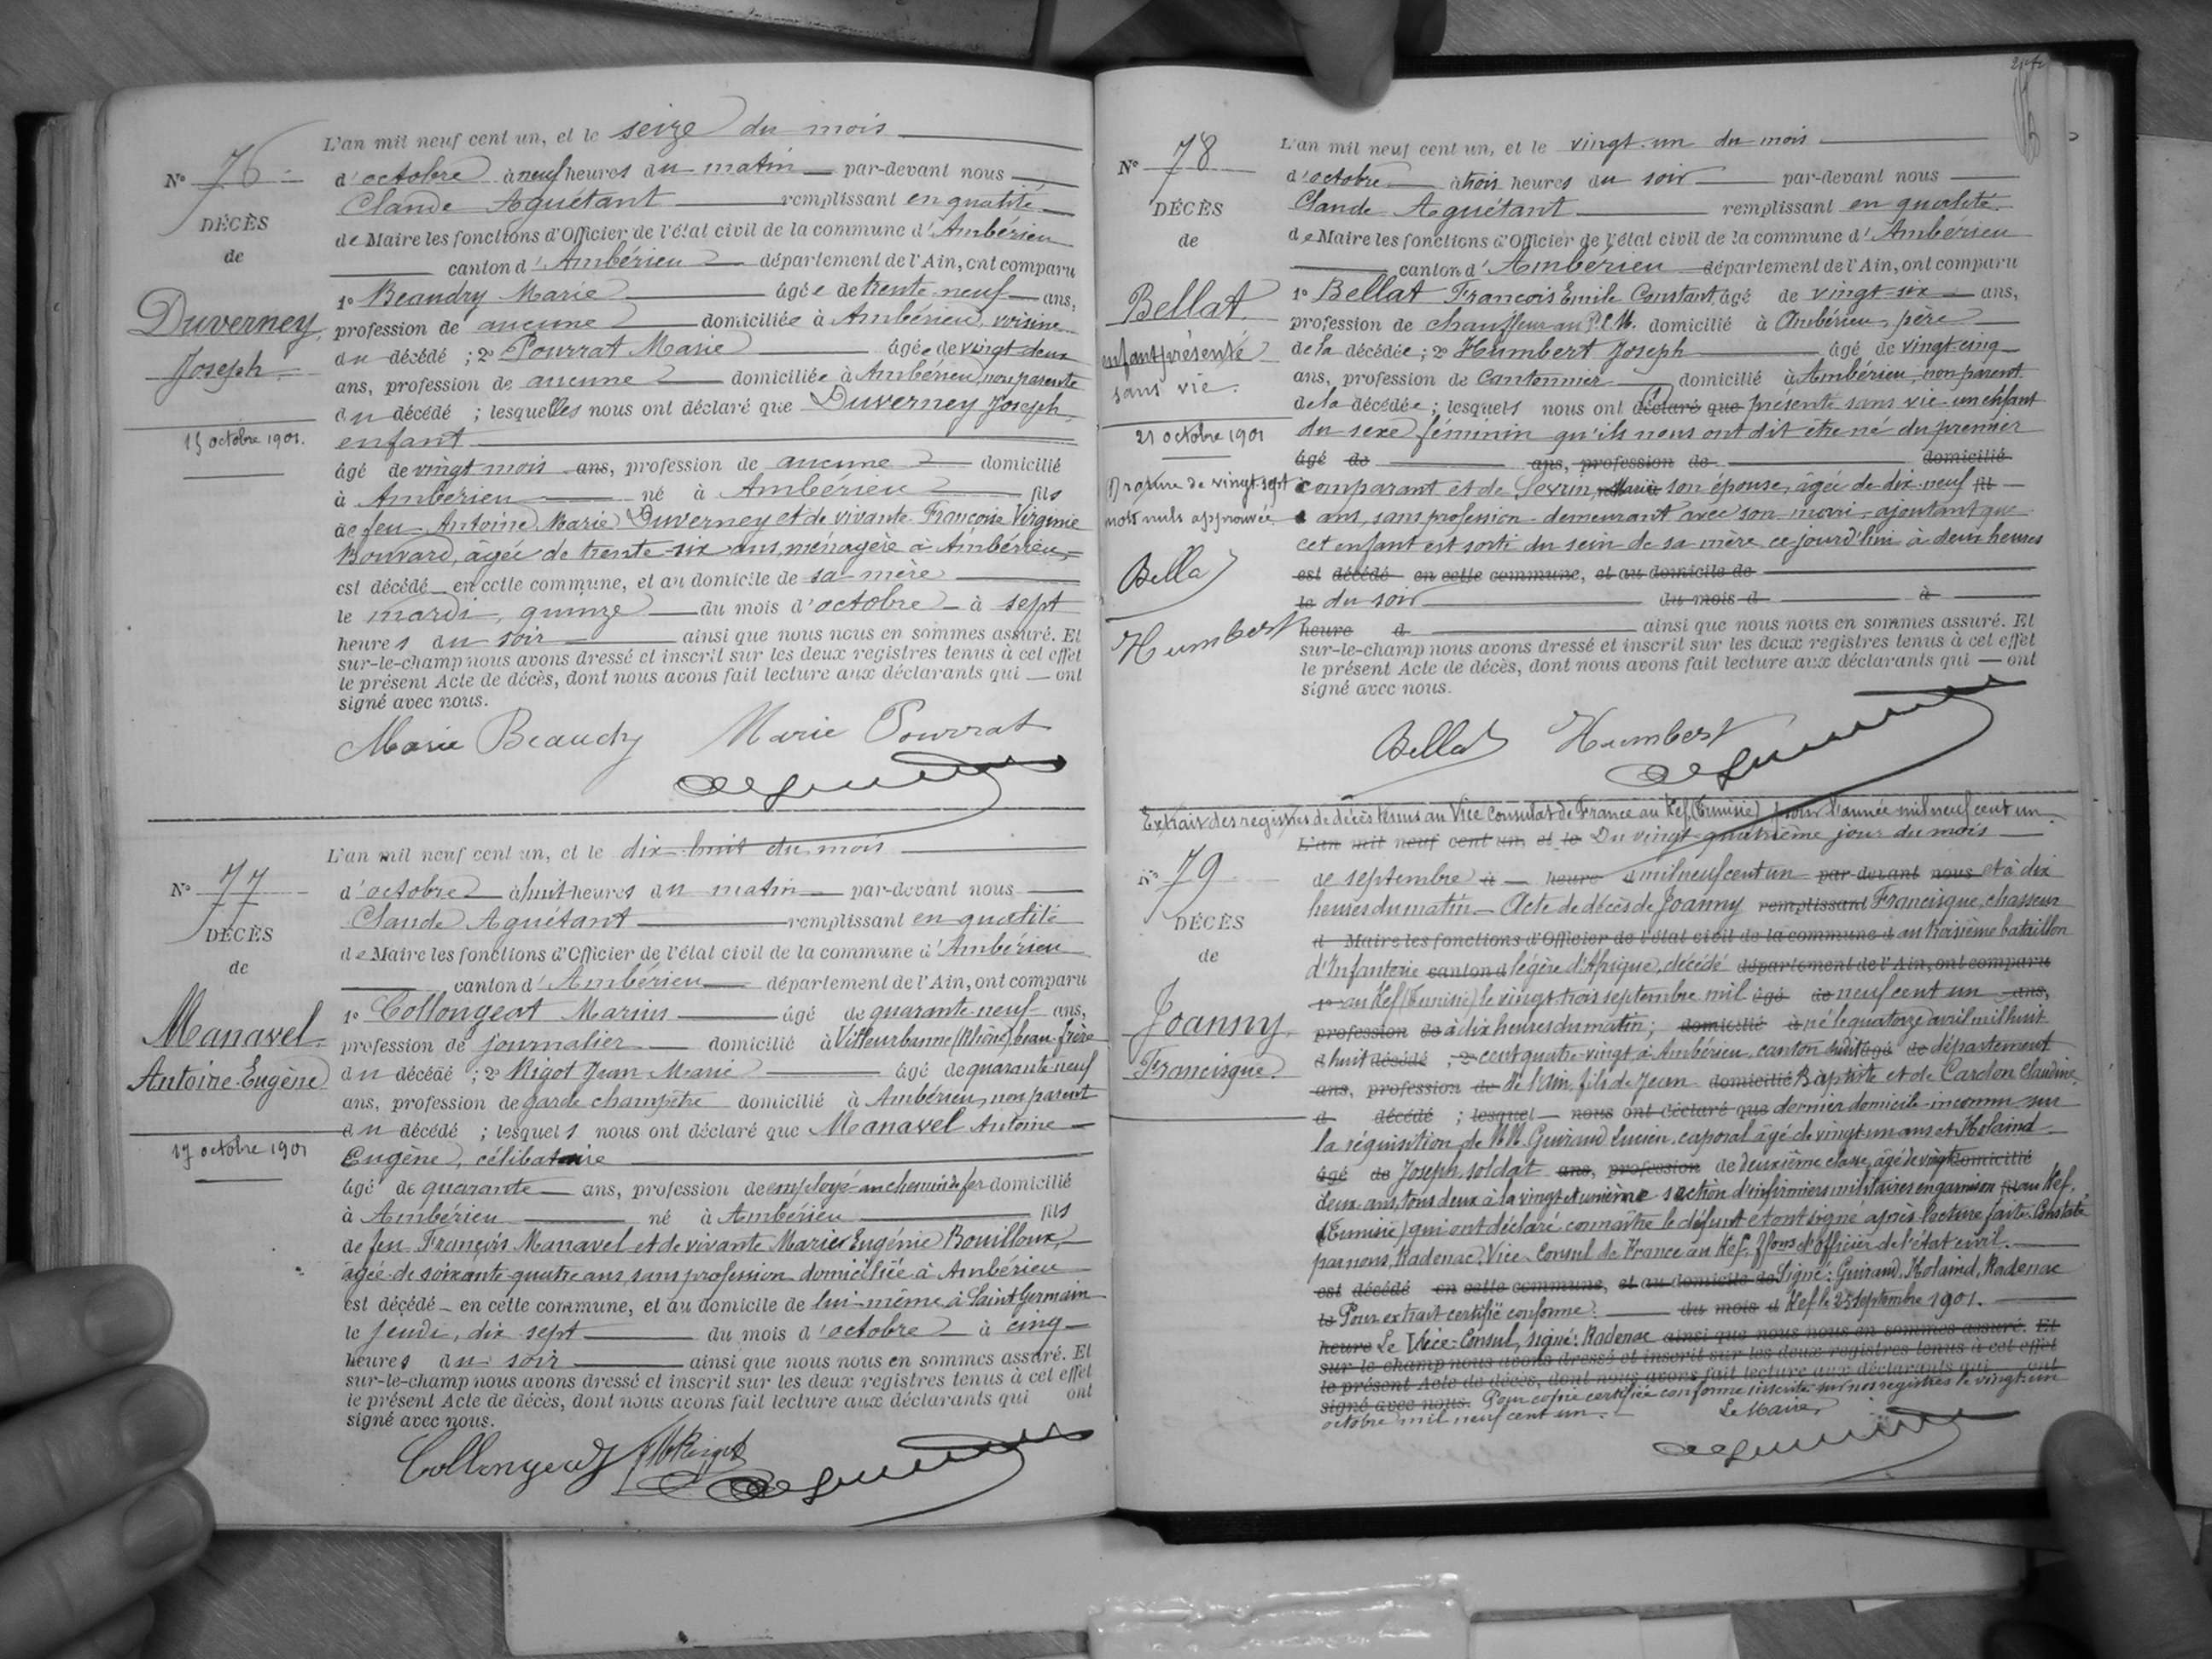 L'an mil neuf cent un, et le seize du mois
N° 76
d'octobre à neuf heures du matin par-devant nous
Claude Aguétant remplissant en qualité
DÉCÈS
de Maire les fonctions d'Officier de l'état civil de la commune d'Ambérieu
de
canton d'Ambérieu département de l'Ain, ont comparu
1° Beaudry Marie âgée de trente-neuf ans,
Duverney
profession de aucune domiciliée à Ambérieu, voisine
Joseph
du décédé ; 2° Pourrat Marie âgée de vingt-deux
ans, profession de aucune domiciliée à Ambérieu, non parente
du décédé ; lesquelles nous ont déclaré que Duverney Joseph,
15 octobre 1901.
enfant
âgé de vingt mois ans, profession de aucune domicilié
à Ambérieu né à Ambérieu fils
de feu Antoine Marie Duverney et de vivante Françoise Virginie
Bouvard, âgée de trente-six ans, ménagère à Ambérieu,
est décédé en cette commune, et au domicile de sa mère
le mardi, quinze du mois d'octobre à sept
heures du soir ainsi que nous nous en sommes assuré. Et
sur-le-champ nous avons dressé et inscrit sur les deux registres tenus à cet effet
le présent Acte de décès, dont nous avons fait lecture aux déclarants qui ont
signé avec nous.
Marie Beaudry Marie Pourrat
L'an mil neuf cent un, et le dix-huit du mois
N° 77
d'octobre à huit heures du matin par-devant nous
Claude Aguétant remplissant en qualité
DÉCÈS
de Maire les fonctions d'Officier de l'état civil de la commune d'Ambérieu
de
canton d'Ambérieu département de l'Ain, ont comparu
1° Collongeat Marius âgé de quarante-neuf ans,
Manavel
profession de journalier domicilié à Villeurbanne (Rhône) beau-frère
Antoine-Eugène
du décédé ; 2° Rigot Jean-Marie âgé de quarante neuf
ans, profession de garde champêtre domicilié à Ambérieu, non parent
du décédé ; lesquels nous ont déclaré que Manavel Antoine
17 octobre 1901
Eugène, célibataire
âgé de quarante ans, profession de employé au chemin de fer domicilié
à Ambérieu né à Ambérieu fils
de feu François Manavel et de vivante Marie Eugénie Bouilloux,
âgée de soixante-quatre ans, sans profession domiciliée à Ambérieu
est décédé en cette commune, et au domicile de lui-même à Saint Germain
le jeudi, dix-sept du mois d'octobre à cinq
heures du soir ainsi que nous nous en sommes assuré. Et
sur-le-champ nous avons dressé et inscrit sur les deux registres tenus à cet effet
le présent Acte de décès, dont nous avons fait lecture aux déclarants qui ont
signé avec nous.
Collongeat JM Rigot
L'an mil neuf cent un, et le vingt-un du mois
N° 78
d'octobre à trois heures du soir par-devant nous
Claude Aguétant remplissant en qualité
DÉCÈS
de Maire les fonctions d'Officier de l'état civil de la commune d'Ambérieu
de
canton d'Ambérieu département de l'Ain, ont comparu
Bellat
1° Bellat François Emile Constant âgé de vingt-six ans,
profession de chauffeur au P.L.M. domicilié à Ambérieu, père
enfant présenté
de la décédée ; 2° Humbert Joseph âgé de vingt-cinq
sans vie.
ans, profession de Cantonnier domicilié à Ambérieu, non parent
de la décédée ; lesquels nous ont déclaré que présenté sans vie un enfant
21 octobre 1901
du sexe féminin qu'ils nous ont dit être né du premier
âgé de ans, profession de domicilié
1) rature de vingt-sept
comparant et de Sevrin, Maria son épouse, âgée de dix-neuf fil
mots nuls approuvée
ans, sans profession demeurant avec son mari, ajoutant que
cet enfant est sorti du sein de sa mère ce jourd'hui à deux heures
Bellat
est décédé en cette commune, et au domicile de
le du soir du mois d à
Humbert
heure d ainsi que nous nous en sommes assuré. Et
sur-le-champ nous avons dressé et inscrit sur les deux registres tenus à cet effet
le présent Acte de décès, dont nous avons fait lecture aux déclarants qui ont
signé avec nous.
Bellat Humbert
Extrait des registres de décès tenus au Vice Consulat de France au Kef, (Tunisie) pour l'année mil neuf cent un.
L'an mil neuf cent un, et le Du vingt quatrième jour du mois
N° 79
de septembre à heure d mil neuf cent un par-devant nous et à dix
heures du matin Acte de décès de Joanny remplissant Francisque, chasseur
DÉCÈS
d Maire les fonctions d'Officier de l'état civil de la commune d au troisième bataillon
de
d'Infanterie canton d légère d'Afrique, décédé département de l'Ain, ont comparu
1° au Kef (Tunisie) le vingt trois septembre mil âgé de neuf cent un ans,
Joanny
profession de à dix heures du matin ; domicilié à né le quatorze avril mil huit
Francisque.
d huit décédé ; 2° cent quatre-vingt, à Ambérieu, canton dudit âgé de département
ans, profession de de l'Ain, fils de Jean domicilié Baptiste et de Cardon Claudine,
d décédé ; lesquel nous ont déclaré que dernier domicile inconnu sur
la réquisition de MM. Guiraud Lucien, caporal âgé de vingt un ans et Holaind
âgé de Joseph, soldat ans, profession de deuxième classe, âgé de vingt domicilié
deux ans, tous deux à la vingt et unième section d'infirmiers militaires en garnison fil au Kef,
(Tunisie) qui ont déclaré connaître le défunt et ont signé après lecture faite. Constaté
par nous, Radenac, Vice-Consul de France au Kef, ffons d'Officier de l'état civil.
est décédé en cette commune, et au domicile de Signé : Guiraud, Holaind, Radenac
le Pour extrait certifié conforme : du mois d Kef le 25 septembre 1901.
heure Le Vice-Consul, signé : Radenac ainsi que nous nous en sommes assuré. Et
sur-le-champ nous avons dressé et inscrit sur les deux registres tenus à cet effet
le présent Acte de décès, dont nous avons fait lecture aux déclarants qui ont
signé avec nous. Pour copie certifiée conforme inscrite sur nos registres le vingt un
octobre mil neuf cent un. Le Maire,